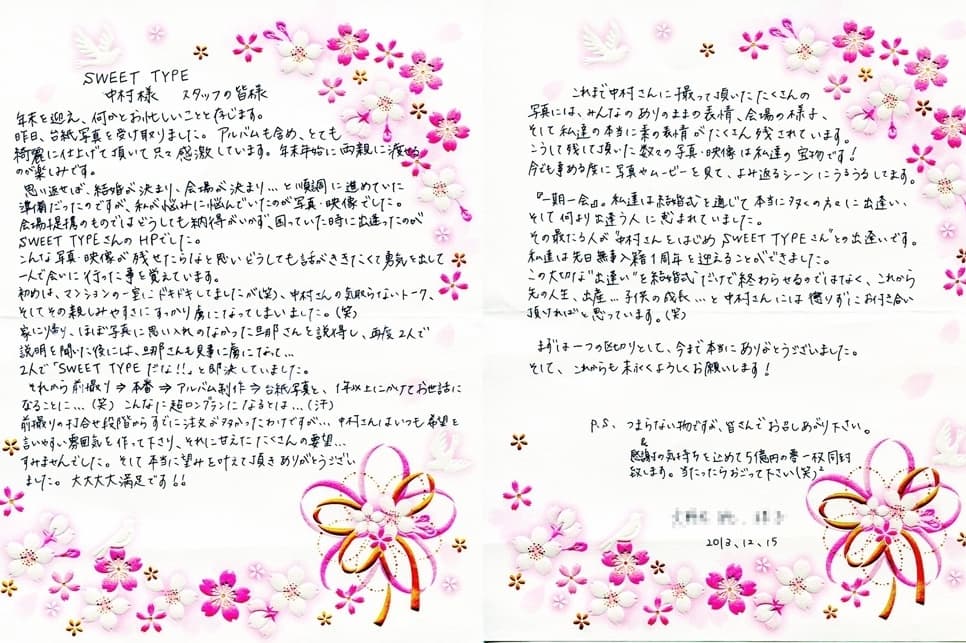 SWEET TYPE
中村様 スタッフの皆様
年末を迎え、何かとお忙しいことと存じます。
昨日、台紙写真を受け取りました。アルバムも含め、とても
綺麗に仕上げて頂いて只々感激しています。年末年始に両親に渡せる
のが楽しみです。
思い返せば、結婚が決まり、会場が決まり…と順調に進めていた
準備だったのですが、私が悩みに悩んでいたのが写真・映像でした。
会場提携のものではどうしても納得がいかず、困っていた時に出逢ったのが
SWEET TYPEさんのHPでした。
こんな写真・映像が残せたらなと思いどうしても話がききたくて勇気を出して
一人で会いに行った事を覚えています。
初めは、マンションの一室にドキドキしてましたが(笑)、中村さんの気取らないトーク、
そしてその親しみやすさにすっかり虜になってしまいました。(笑)
家に帰り、ほぼ写真に思い入れのなかった旦那さんを説得し、再度2人で
説明を聞いた後には、旦那さんも見事に虜になって…
2人で"SWEET TYPEだな!!"と即決していました。
それから前撮り⇒本番⇒アルバム制作⇒台紙写真と、1年以上にかけてお世話に
なることに…(笑) こんなに超ロングランになるとは…(汗)
前撮りの打合せ段階からすでに注文が多かったわけですが…中村さんはいつも希望を
言いやすい雰囲気を作って下り、それに甘えたたくさんの要望…
すみませんでした。そして本当に望みを叶えて頂きありがとうござい
ました。大大大大満足です!!
これまで中村さんに撮って頂いたたくさんの
写真には、みんなのありのままの表情、会場の様子、
そして私達の本当に素の表情がたくさん残されています。
こうして残して頂いた数々の写真・映像は私達の宝物です!
今でも事ある度に写真やムービーを見て、よみ返るシーンにうるうるします。
『一期一会』。私達は結婚式を通じて本当に多くの方々に出逢い、
そして何より出逢う人に恵まれていました。
その最たる人が"中村さんをはじめSWEET TYPEさん"との出逢いです。
私達は先日無事入籍1周年を迎えることができました。
この大切な"出逢い"を結婚式だけで終わらせるのではなく、これから
先の人生、出産…子供の成長…と中村さんには懲りずにお付き合い
頂ければと思っています。(笑)
まずは一つの区切りとして、今まで本当にありがとうございました。
そして、これからも末永くよろしくお願いします!
P.S. つまらない物ですが、皆さんでお召しあがり下さい。
&
感謝の気持ちを込めて5億円の夢一枚同封
致します。当たったらおごって下さい(笑)
2013.12.15